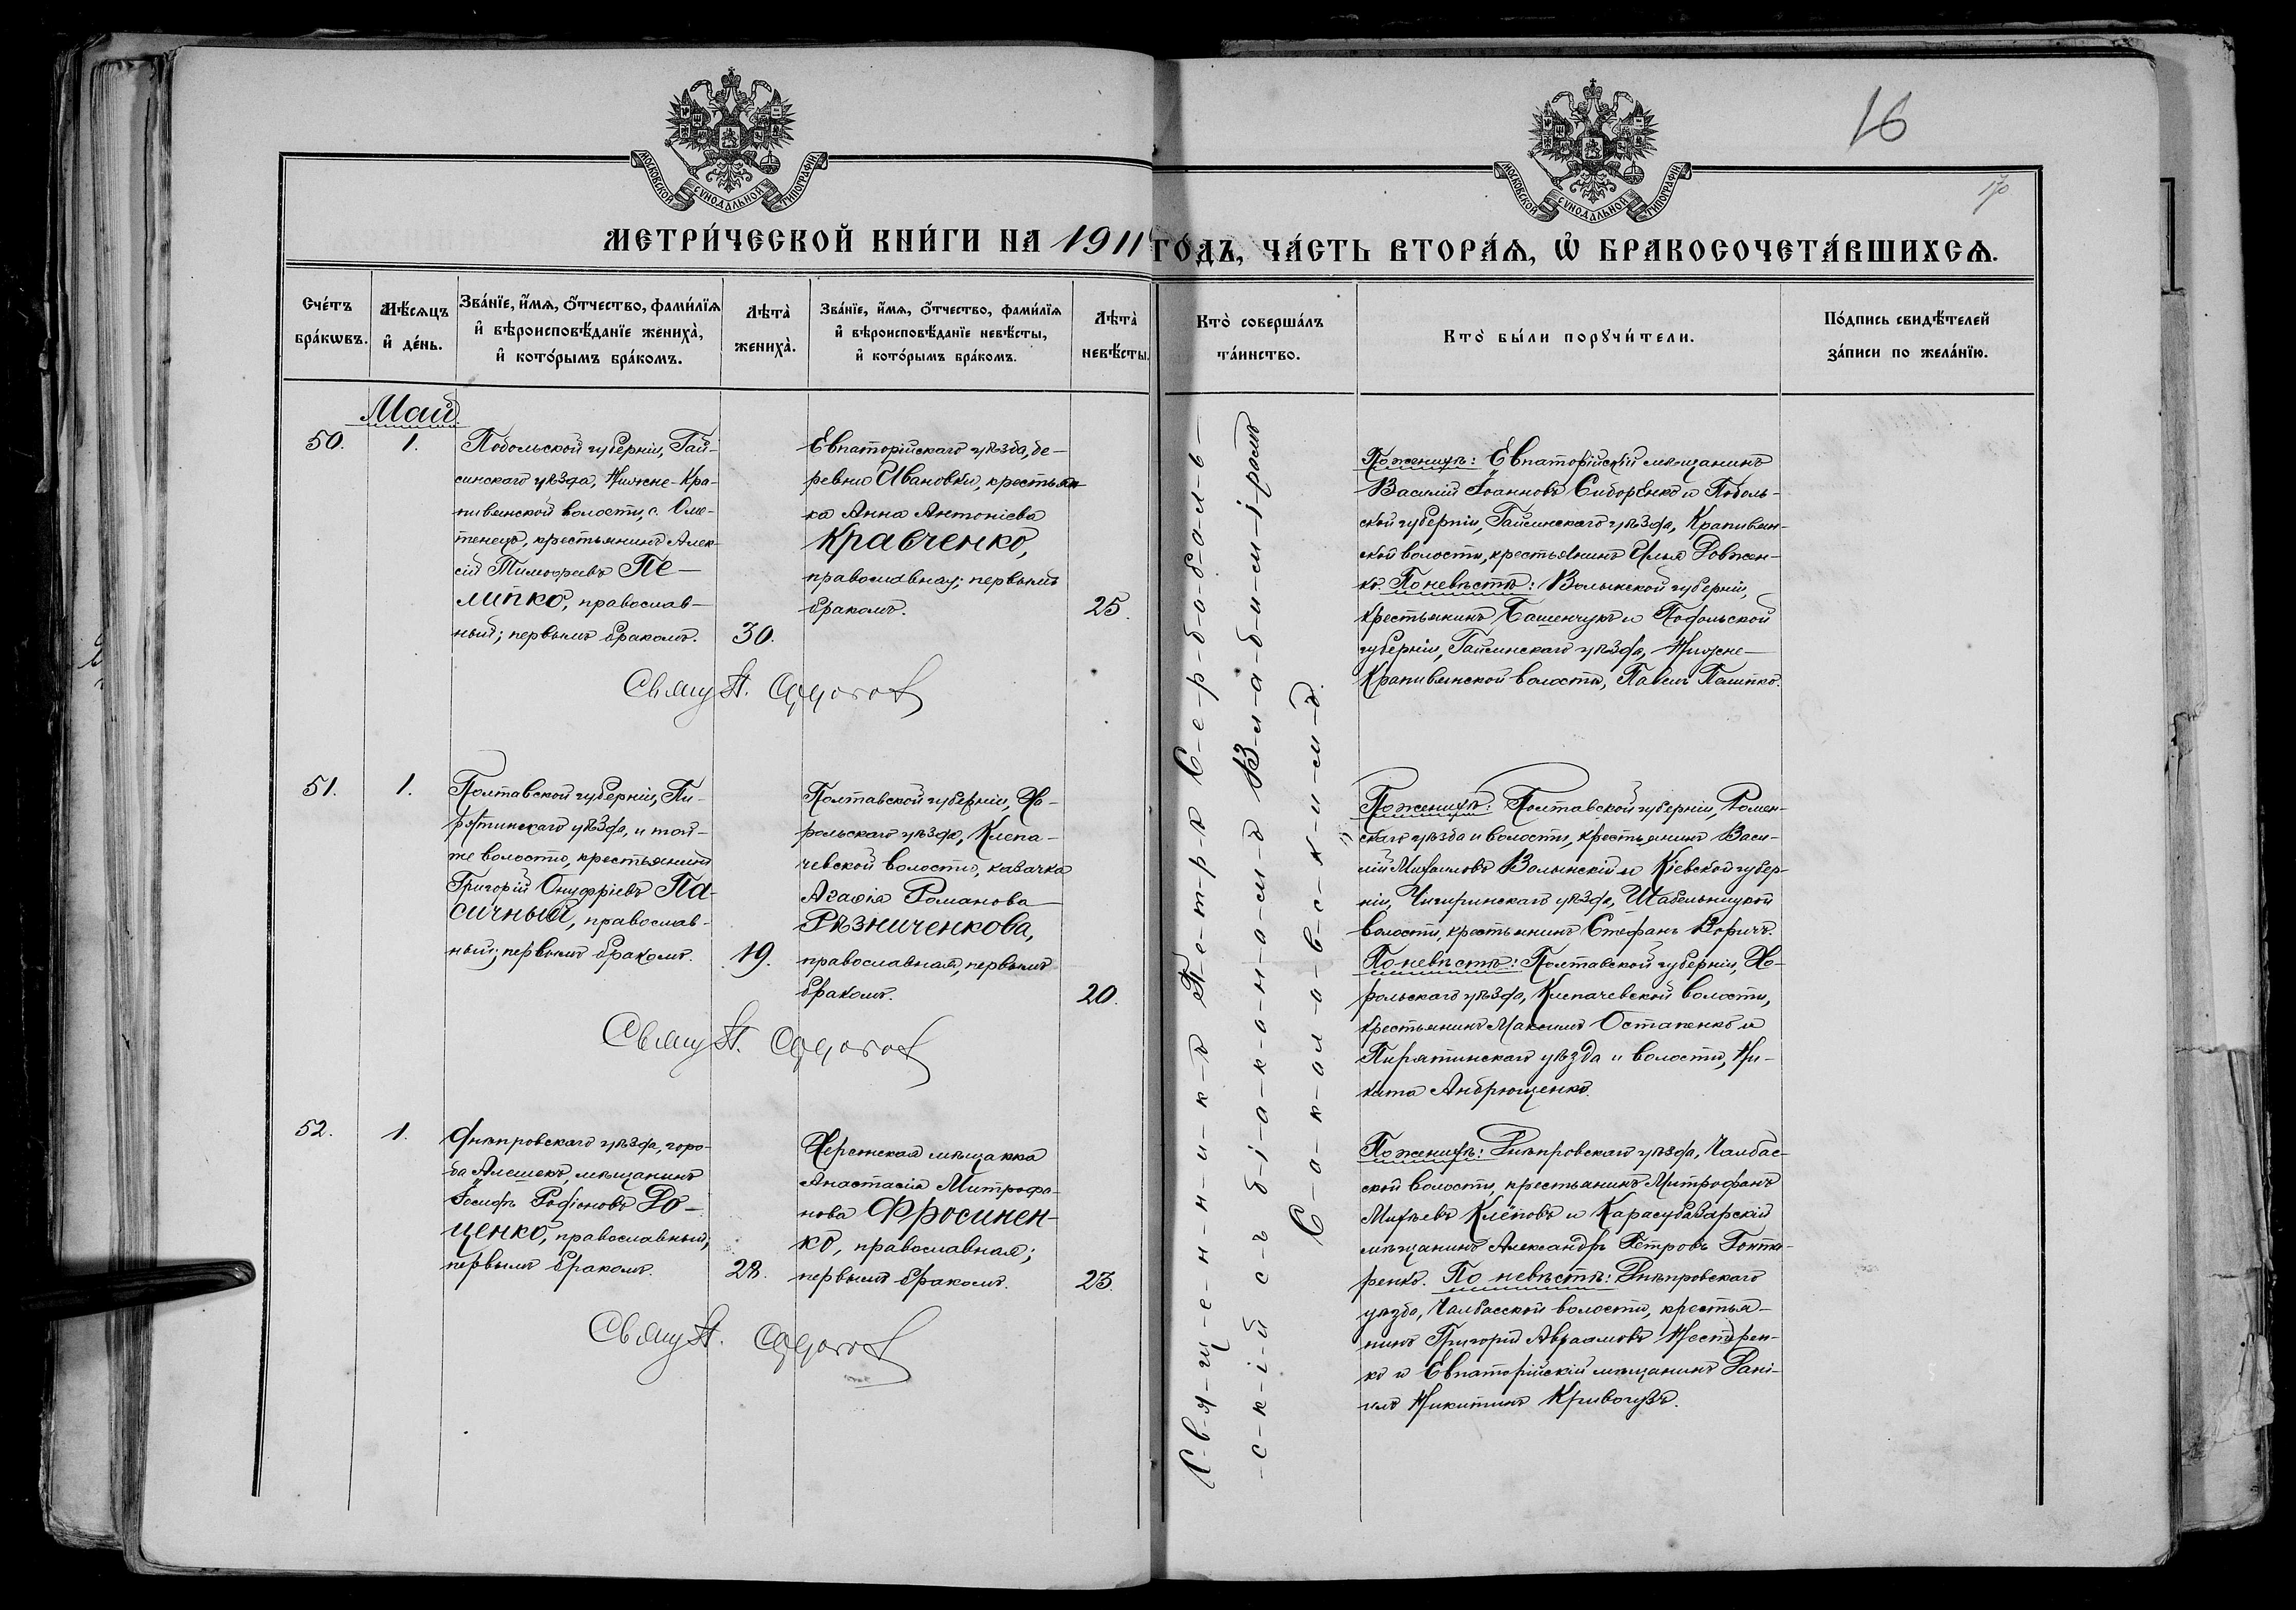 МОСКОВСКОЙ СѴНОДАЛЬНОЙ ТИПОГРАФІИ
МОСКОВСКОЙ СѴНОДАЛЬНОЙ ТИПОГРАФІИ
16
МЕТРИ́ЧЕСКОЙ КНИ́ГИ НА 1911 ГО́ДЪ, ЧА́СТЬ ВТОРА́Ѧ, Ѡ҆ БРАКОСОЧЕТА́ВШИХСѦ.
Сче́тъ бра́кѡвъ.
Мѣ́сѧцъ и҆ де́нь.
Зва́нїе, и҆́мѧ, ѻ҆́тчество, фами́лїѧ
и҆ вѣроисповѣ́данїе жениха̀,
и҆ кото́рымъ бра́комъ.
Лѣта̀ жениха̀.
Зва́нїе, и҆́мѧ, ѻ҆́тчество, фами́лїѧ
и҆ вѣроисповѣ́данїе невѣ́сты,
и҆ кото́рымъ бра́комъ.
Лѣта̀ невѣ́сты.
Кто̀ соверша́лъ
та́инство.
Кто̀ бы́ли порꙋчи́тели.
По́дпись свидѣ́телей
за́писи по жела́нїю.
Май
50.
1.
Подольской губерніи, Гай-
синскаго уѣзда, Нижне-Кра-
пивянской волости, с. Оме-
тенецъ, крестьянинъ Алек-
сій Тимоѳеевъ Пе-
липко, православ-
ный; первымъ бракомъ.
30.
Евпаторійскаго уѣзда, де-
ревни Ивановки, крестьян-
ка Анна Антоніева
Кравченко,
православная; первымъ
бракомъ.
25.
Свящ. П.
По женихѣ: Евпаторійскій мѣщанинъ
Василій Іоанновъ Сидоренко и Подоль-
ской губерніи, Гайсинскаго уѣзда, Крапивян-
ской волости, крестьянинъ Илья Довжен-
ко. По невѣстѣ: Волынской губерніи,
крестьянинъ Башенчукъ и Подольской
губерніи, Гайсинскаго уѣзда, Нижне-
Крапивянской волости, Павелъ Пелипко.
51.
1.
Полтавской губерніи, Пи-
рятинскаго уѣзда, и той-
же волости, крестьянинъ
Григорій Онуфріевъ Па-
сичный, православ-
ный; первымъ бракомъ.
19.
Полтавской губерніи, Хо-
рольскаго уѣзда, Клепа-
чевской волости, казачка
Агаѳія Романова
Рѣзниченкова,
православная, первымъ
бракомъ.
20.
Свящ. П.
По женихѣ: Полтавской губерніи, Ромен-
скаго уѣзда и волости, крестьянинъ Васи-
лій Михаиловъ Волынскій и Кіевской губер-
ніи, Чигиринскаго уѣзда, Шабельницкой
волости, крестьянинъ Стефанъ
По невѣстѣ: Полтавской губерніи, Хо-
рольскаго уѣзда, Клепачевской волости,
крестьянинъ Максимъ Остапенко и
Пирятинскаго уѣзда и волости, Ни-
кита Андрющенко.
52.
1.
Днѣпровскаго уѣзда, горо-
да Алешекъ, мѣщанинъ
Іосифъ Родіоновъ До-
ценко, православный;
первымъ бракомъ.
28.
Херсонская мѣщанка
Анастасія Митрофа-
нова Фросинен-
ко, православная;
первымъ бракомъ.
23.
Свящ. П.
По женихѣ: Днѣпровскаго уѣзда, Чалбас-
ской волости, крестьянинъ Митрофанъ
Михѣевъ Клёповъ и Карасубазарскій
мѣщанинъ Александръ Петровъ Гонта-
ренко. По невѣстѣ: Днѣпровскаго
уѣзда, Чалбасской волости, крестья-
нинъ Григорій Авраамовъ Нестерен-
ко и Евпаторійскій мѣщанинъ Дані-
илъ Никитинъ Кривогузъ.
С-в-я-щ-е-н-н-и-к-ъ П-е-т-р-ъ С-е-р-б-о-б-о-л-ь-
-с-к-і-й с-ъ д-і-а-к-о-н-о-м-ъ В-л-а-д-и-м-і-ромъ
С-о-к-ол-о-в-с-к-и-м-ъ.